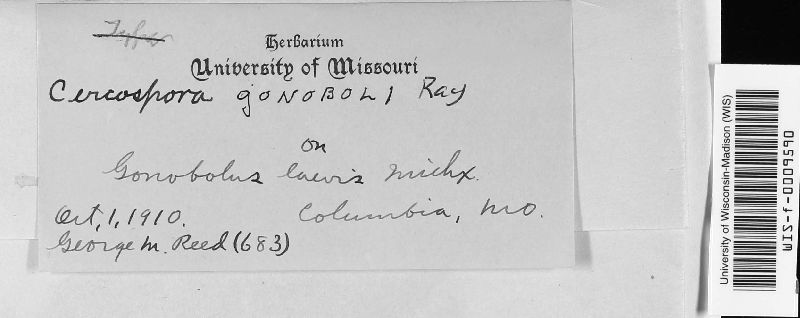 Herbarium
University of Missouri
Cercospora gonoboli Ray
on
Gonobolus laevis Michx.
Oct, 1, 1910. Columbia, Mo.
George M. Reed (683)
University of Wisconsin-Madison (WIS)
WIS-f-0009590